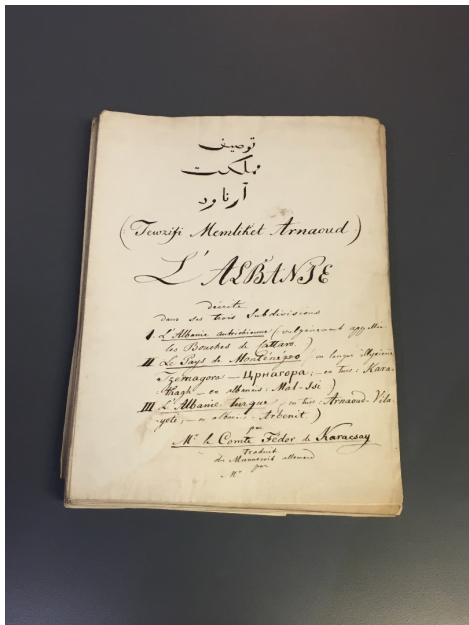 توصيف
مملكت
آرناود
(Tewzifi Memliket Arnaoud)
L'ALBANIE
décrite
dans ses trois Subdivisions
I. L'Albanie autrichienne (vulgairement appellée
les Bouches de Cattaro.)
II. Le Pays de Monténégro (en langue Illyrienne
Tzernagora — Црнагора; — en turc: Kara-
thagh — en albanais: Mal-Isi)
III. L'Albanie turque (en turc: Arnaoud-Vila-
yeti; — en alban: Arbenit)
par
Mr. le Comte Fédor de Karacsay
Traduit
du Manuscrit allemand
par
Mr